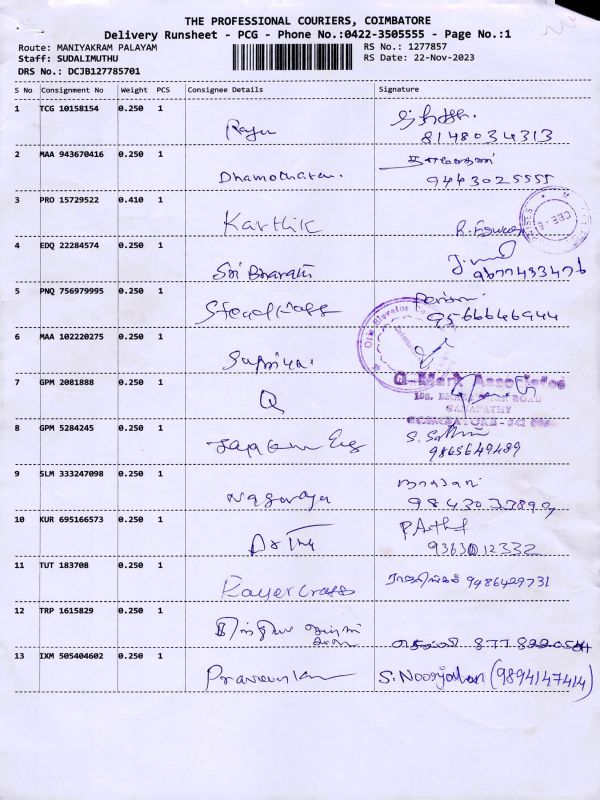 THE PROFESSIONAL COURIERS, COIMBATORE
Delivery Runsheet - PCG - Phone No.:0422-3505555 - Page No.:1
Route: MANIYAKRAM PALAYAM RS No.: 1277857
Staff: SUDALIMUTHU RS Date: 22-Nov-2023
DRS No.: DCJB127785701
S No Consignment No Weight PCS Consignee Details Signature
1 TCG 10158154 0.250 1
Raju 8148034313
2 MAA 943670416 0.250 1
Dhamotharan. 9443025555
3 PRO 15729522 0.410 1
Karthik R. Eswar
4 EDQ 22284574 0.250 1
Sri Bharath 9677433476
5 PNQ 756979995 0.250 1
9566646944
6 MAA 102220275 0.250 1
Supriya.
7 GPM 2081888 0.250 1
Q
G-Mark Associates
ROAD
GANAPATHY
COIMBATORE
8 GPM 5284245 0.250 1
S. 9865649489
9 SLM 333247098 0.250 1
Nagaraja 9843033899
10 KUR 695166573 0.250 1
9363012332
11 TUT 183708 0.250 1
9486429731
12 TRP 1615829 0.250 1
இந்திய
13 IXM 505404602 0.250 1
S. Noorjahan (9894147414)